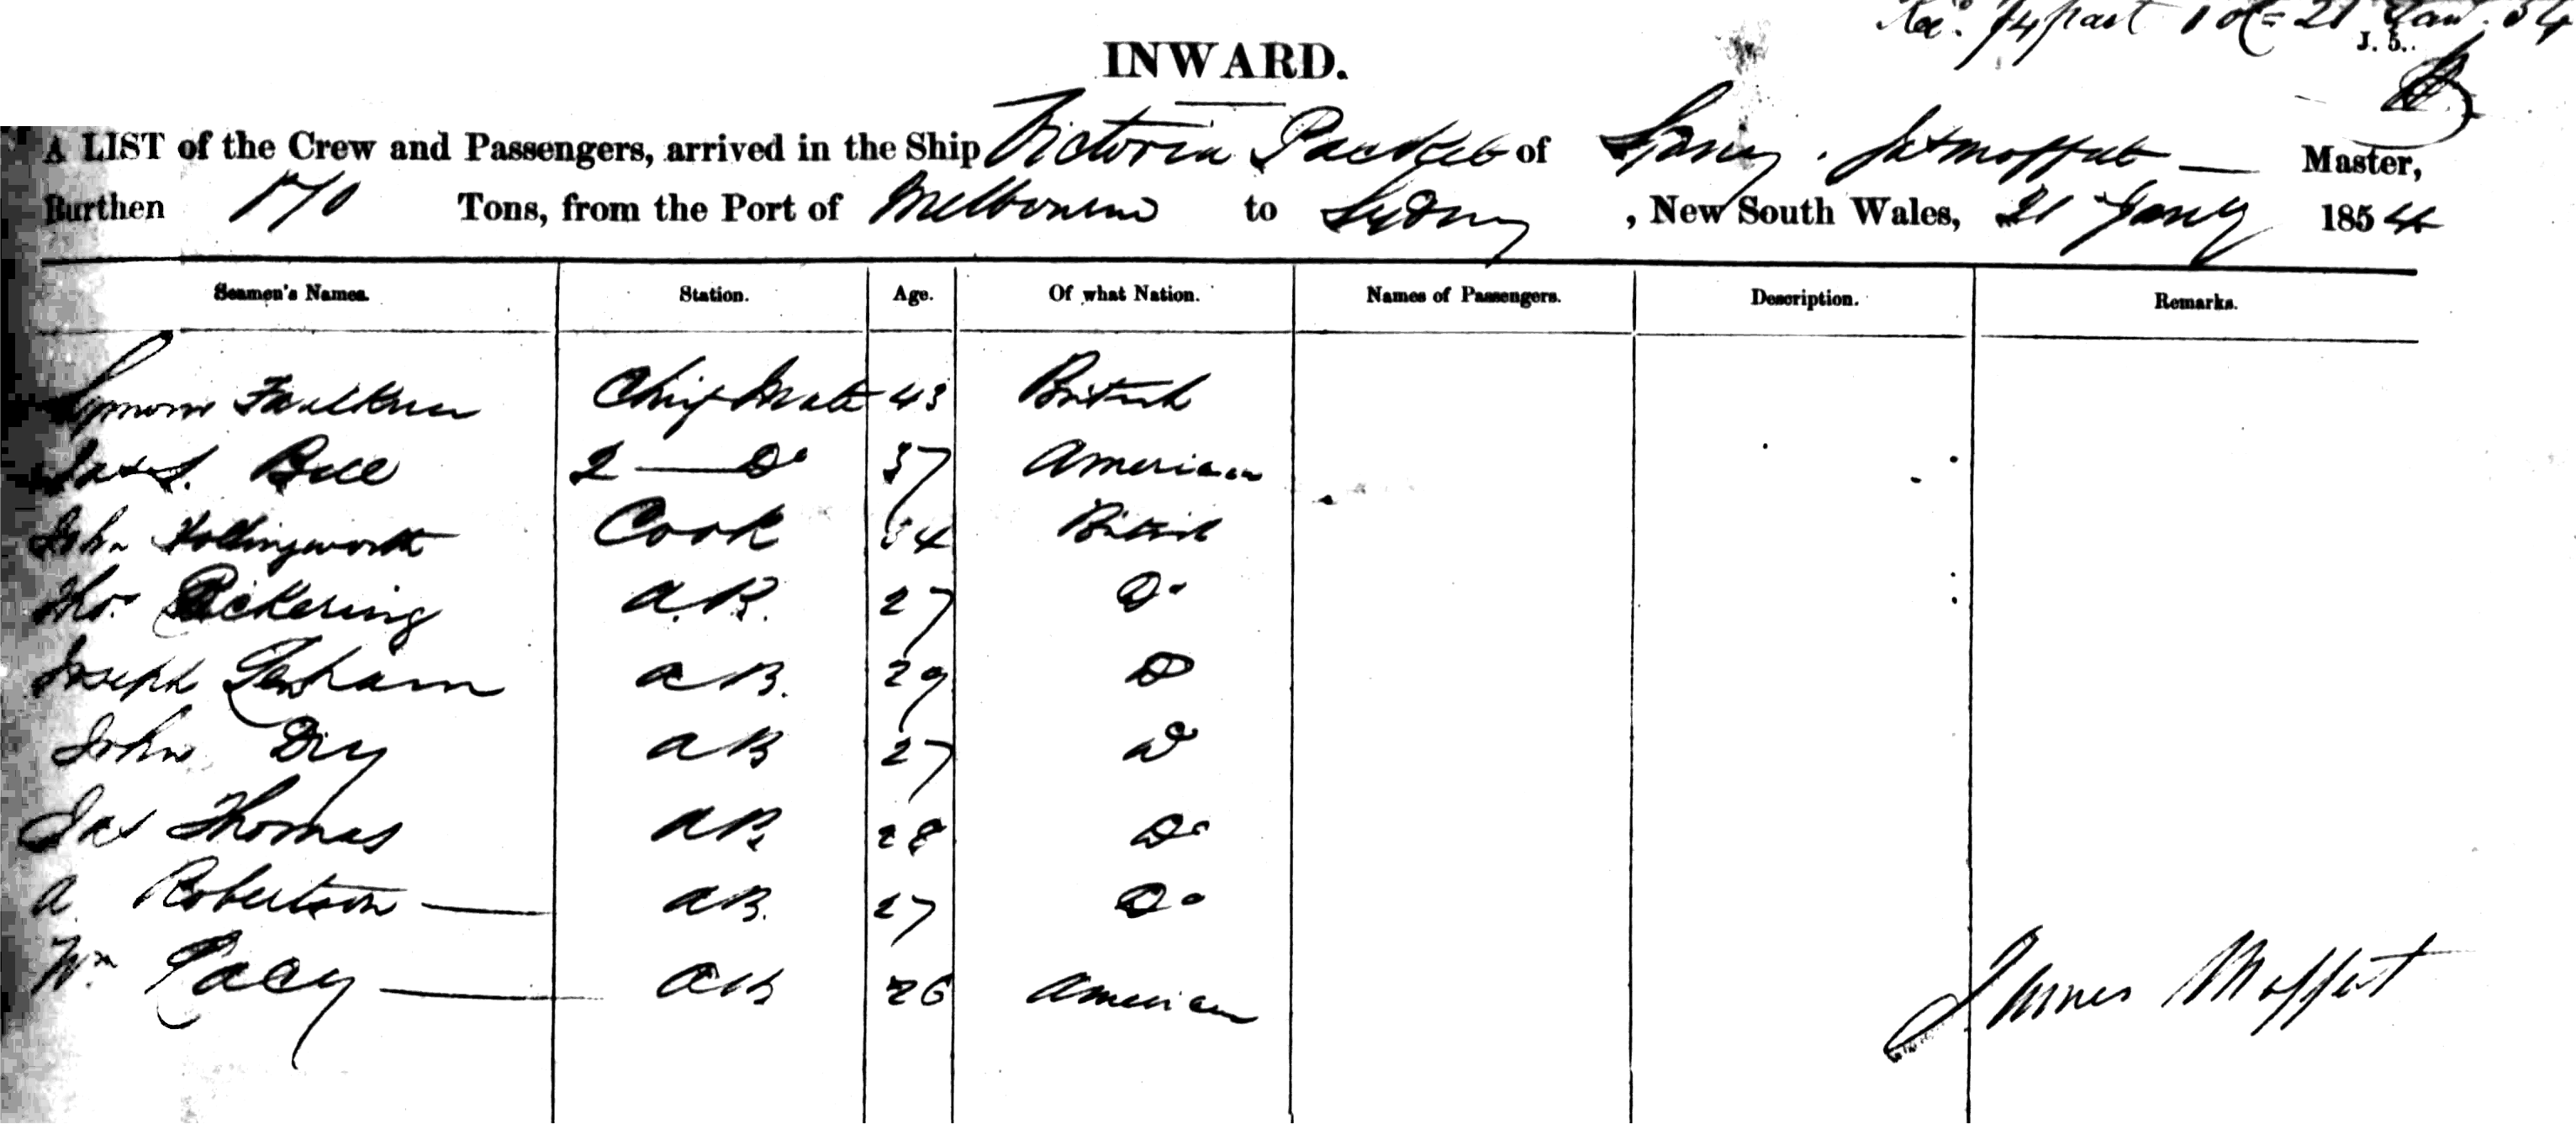 Recd. ¼ past 1 21 Jan. 54
J. 5.
INWARD.
A LIST of the Crew and Passengers, arrived in the Ship Victoria Packet of Jas Moffat Master,
Burthen 170 Tons, from the Port of Melbourne to Sydney, New South Wales, 21 Jany 1854
Seamen's Names. Station. Age. Of what Nation. Names of Passengers. Description. Remarks.
Faulkner Chief Mate 43 British
Jas S. Bell 2 Do 37 American
John Hollingworth Cook 34 British
Thos. Pickering A.B. 27 Do
Joseph AB. 29 Do
John Dry AB 27 Do
Jas Thomas AB 28 Do
A Robertson AB. 27 Do
Wm Lacy AB 26 American
James Moffat